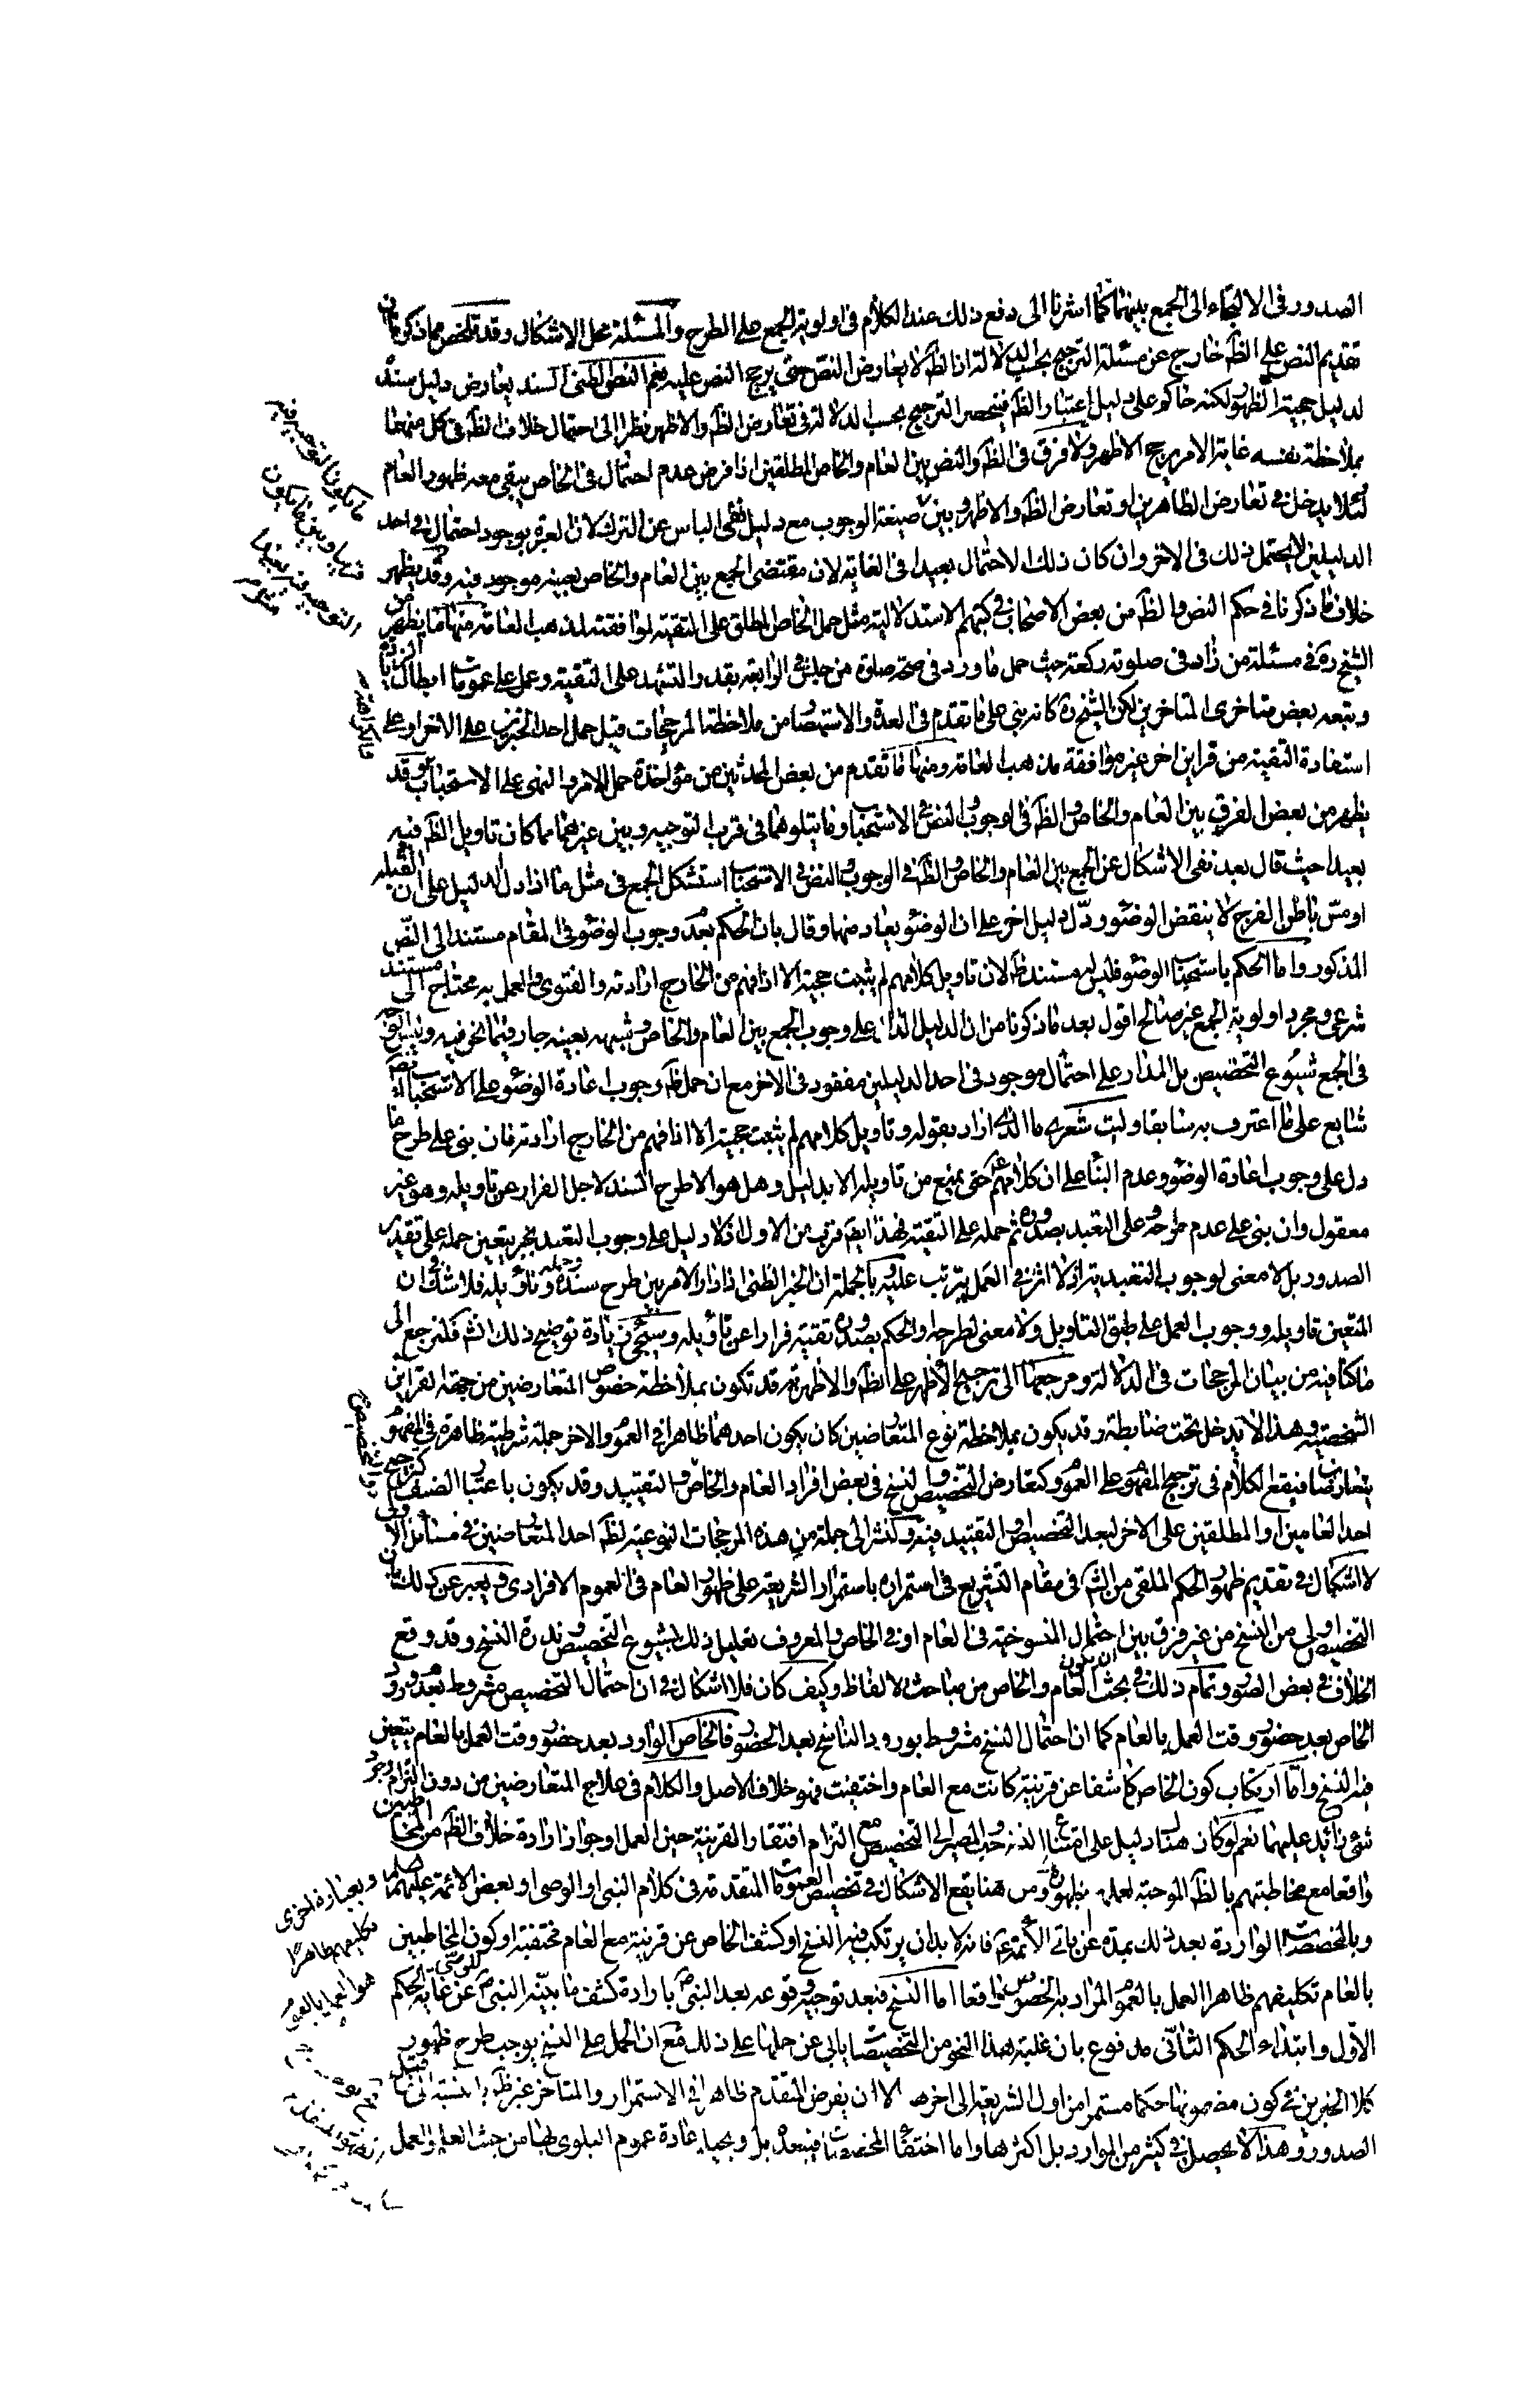 الصدور فى الالتجاء الى الجمع بينهما كما اشرنا الى دفع ذلك عند الكلام فى اولوية الجمع على الطرح والمسئلة محل الاشكال وقد تلخص مما ذكرنا ان
تقديم النص على الظه خارج عن مسئلة الترجيح بحسب الدلالة اذ الظه لا يعارض النص حتى يرجح النص عليه نعم النص الظنى السند يعارض دليل سنده
لدليل حجية الظهور لكنه حاكم على دليل اعتبار الظه فينحصر الترجيح بحسب الدلالة فى تعارض الظه والاظهر نظرا الى احتمال خلاف الظه فى كل منهما
بملاحظة نفسه غاية الامر يرجح الاظهر ولا فرق فى الظه والنص بين العام والخاص المطلقين اذا فرض عدم احتمال فى الخاص يبقى معه ظهور العام
لئلا يدخل فى تعارض الظاهرين او تعارض الظه والاظهر وبين صيغة الوجوب مع دليل نفى الباس عن الترك لان العبرة بوجود احتمال فى احد
الدليلين لا يحتمل ذلك فى الاخر وان كان ذلك الاحتمال بعيدا فى الغاية لان مقتضى الجمع بين العام والخاص بعينه موجود فيه وقد يظهر
خلاف ما ذكرنا فى حكم النص والظه من بعض الاصحاب فى كتبهم الاستدلالية مثل حمل الخاص المطلق على التقية لموافقته لمذهب العامة منها ما يظهر من
الشيخ ره فى مسئلة من زاد فى صلوته ركعة حيث حمل ما ورد فى صحة صلوة من جلس فى الرابعة بقدر التشهد على التقية وعمل على عمومات ابطال الزيادة
وتبعه بعض متاخرى المتاخرين لكن الشيخ ره كانه بنى على ما تقدم فى العدة والاستبصار من ملاحظة المرجحات قبل حمل احد الخبرين على الاخر او على
استفادة التقية من قراين اخر غير موافقة مذهب العامة ومنها ما تقدم من بعض المحدثين من مؤاخذة حمل الامر والنهى على الاستحباب وقد
يظهر من بعض الفرق بين العام والخاص والظه فى الوجوب والنص فى الاستحباب وما يتلوهما فى قرب التوجيه وبين غيرهما مما كان تاويل الظه فيه
بعيدا حيث قال بعد نفى الاشكال عن الجمع بين العام والخاص والظه فى الوجوب والنص فى الاستحباب استشكل الجمع فى مثل ما اذا دل الدليل على ان القبلة
او مس باطن الفرج لا ينقض الوضوء ودل دليل اخر على ان الوضوء يعاد منها وقال بان الحكم بعدم وجوب الوضوء فى المقام مستندا الى النص
المذكور واما الحكم باستحباب الوضوء فليس له مستند ظه لان تاويل كلامهم لم يثبت حجيته الا اذا فهم من الخارج ارادته والفتوى والعمل به محتاج الى مستند
شرعى ومجرد اولوية الجمع غير صالح اقول بعد ما ذكرنا من ان الدليل الدال على وجوب الجمع بين العام والخاص وشبهه بعينه جار فيما نحن فيه وليس الوجه
فى الجمع شيوع التخصيص بل المدار على احتمال موجود فى احد الدليلين مفقود فى الاخر مع ان حمل ظه وجوب اعادة الوضوء على الاستحباب ايضا
شايع على ما اعترف به سابقا وليت شعرى ما الذى اراد بقوله وتاويل كلامهم لم يثبت حجيته الا اذا فهم من الخارج ارادته فان بنى على طرح ما
دل على وجوب اعادة الوضوء وعدم البناء على ان كلامهم ع حتى يمنع من تاويله الا بدليل وهل هو الا طرح السند لاجل الفرار عن تاويله وهو غير
معقول وان بنى على عدم طرحه وعلى التعبد بصدوره ثم حمله على التقية فهذا ايضا قريب من الاول اذ لا دليل على وجوب التعبد بخبر يتعين حمله على تقدير
الصدور بل لا معنى لوجوب التعبد به اذ لا اثر فى العمل يترتب عليه وبالجملة ان الخبر الظنى اذا دار الامر بين طرح سنده وحمله وتاويله فلا شك فى ان
المتعين تاويله ووجوب العمل على طبق التاويل ولا معنى لطرحه او الحكم بصدوره تقية فرارا عن تاويله وسيجئ زيادة توضيح ذلك انش فلنرجع الى
ما كنا فيه من بيان المرجحات فى الدلالة ومرجعها الى ترجيح الاظهر على الظه والاظهرية قد تكون بملاحظة خصوص المتعارضين من جهة القراين
الشخصية وهذا لا يدخل تحت ضابطة وقد يكون بملاحظة نوع المتعارضين كان يكون احدهما ظاهرا فى العموم والاخر جملة شرطية ظاهرة فى المفهوم
يتعارضان فيقع الكلام فى ترجيح المفهوم على العموم وكتعارض التخصيص والنسخ فى بعض افراد العام والخاص والتقييد وقد يكون باعتبار الصنف كترجيح
احد العامين او المطلقين على الاخر لبعد التخصيص او التقييد فيه ولنشر الى جملة من هذه المرجحات النوعية لظه احد المتعارضين فى مسائل الاولى
لا اشكال فى تقديم ظهور الحكم الملقى من الش فى مقام التشريع فى استمراره باستمرار الشريعة على ظهور العام فى العموم الافرادى ويعبر عن ذلك بان
التخصيص اولى من النسخ من غير فرق بين احتمال المنسوخية فى العام او فى الخاص والمعروف تعليل ذلك بشيوع التخصيص وندرة النسخ وقد وقع
الخلاف فى بعض الصور وتمام ذلك فى بحث العام والخاص من مباحث الالفاظ وكيف كان فلا اشكال فى ان احتمال التخصيص مشروط بعدم ورود
الخاص بعد حضور وقت العمل بالعام كما ان احتمال النسخ مشروط بورود الناسخ بعد الحضور فالخاص الوارد بعد حضور وقت العمل بالعام يتعين
فيه النسخ واما ارتكاب كون الخاص كاشفا عن قرينة كانت مع العام واختفيت فهو خلاف الاصل والكلام فى علاج المتعارضين من دون التزام وجود
شئ زائد عليهما نعم لو كان هناك دليل على امتناع النسخ وجب المصير الى التخصيص مع التزام اختفاء القرينة حين العمل او جواز ارادة خلاف الظه من المخاطبين
واقعا مع مخاطبتهم بالظه الموجبة لعملهم بظهوره ومن هنا يقع الاشكال فى تخصيص العمومات المتقدمة فى كلام النبى او الوصى او بعض الائمة عليهم السلام
وبالمخصصات الواردة بعد ذلك بمدة عن باقى الائمة ع فانه لا بد ان يرتكب فيه النسخ او كشف الخاص عن قرينة مع العام مختفية او كون المخاطبين
بالعام تكليفهم ظاهرا العمل بالعموم المراد به الخصوص واقعا اما النسخ فبعد توجيه وقوعه بعد النبى ص بارادة كشف ما بينه النبى ص للوصى عن غاية الحكم
الاول وابتداء الحكم الثانى مدفوع بان غلبة هذا النحو من التخصيصات يابى عن حملها على ذلك مع ان الحمل على النسخ يوجب طرح ظهور
كلا الخبرين فى كون مضمونهما حكما مستمرا من اول الشريعة الى اخرها الا ان يفرض المتقدم ظاهرا فى الاستمرار والمتاخر غير ظه بالنسبة الى ما قبل
الصدور وهذا لا يحصل فى كثير من الموارد بل اكثرها واما اختفاء المخصصات فيبعده بل ويحيله عادة عموم البلوى بها من حيث العلم والعمل
ما يكون التوجيه فيه
قريبا وبين ما يكون
التوجيه فيه بعيدا
وبعبارة اخرى
تكليفهم ظاهرا
هو العمل بالعموم